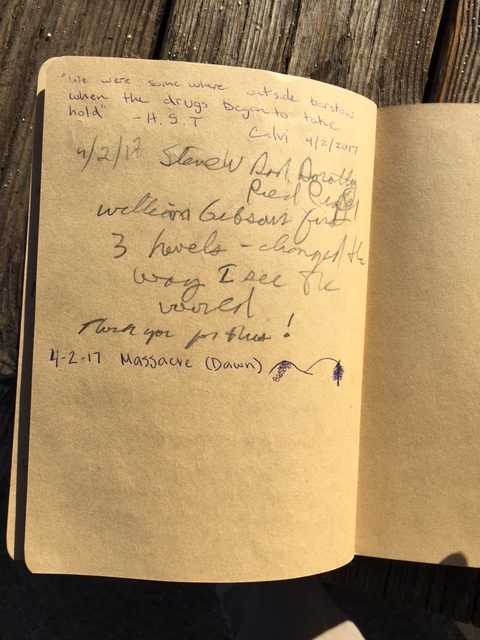 "We were somewhere outside barstow
when the drugs began to take
hold" - H.S.T
Calvi 4/2/2017
4/2/17 SteveW and Dorothy
Pied
William Gibson's first
3 novels - changed the
way I see the
world.
Thank you for this!
4-2-17 Massacre (Dawn)